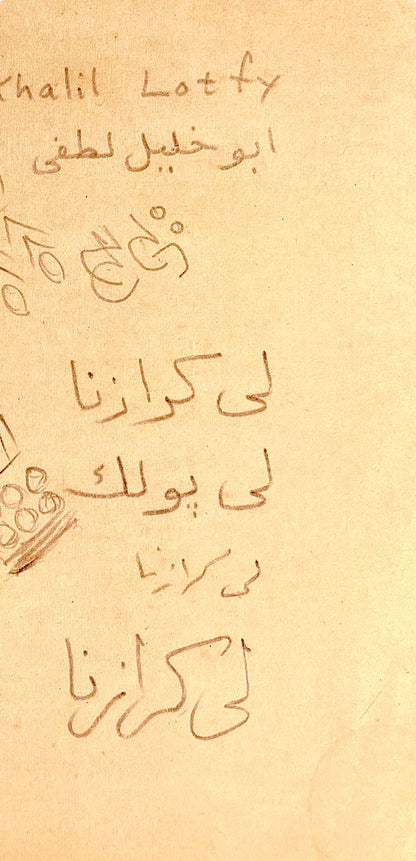 Khalil Lotfy
ابو خليل لطفى
لى كرازنا
لى پولك
لى كرازنا
لى كرازنا